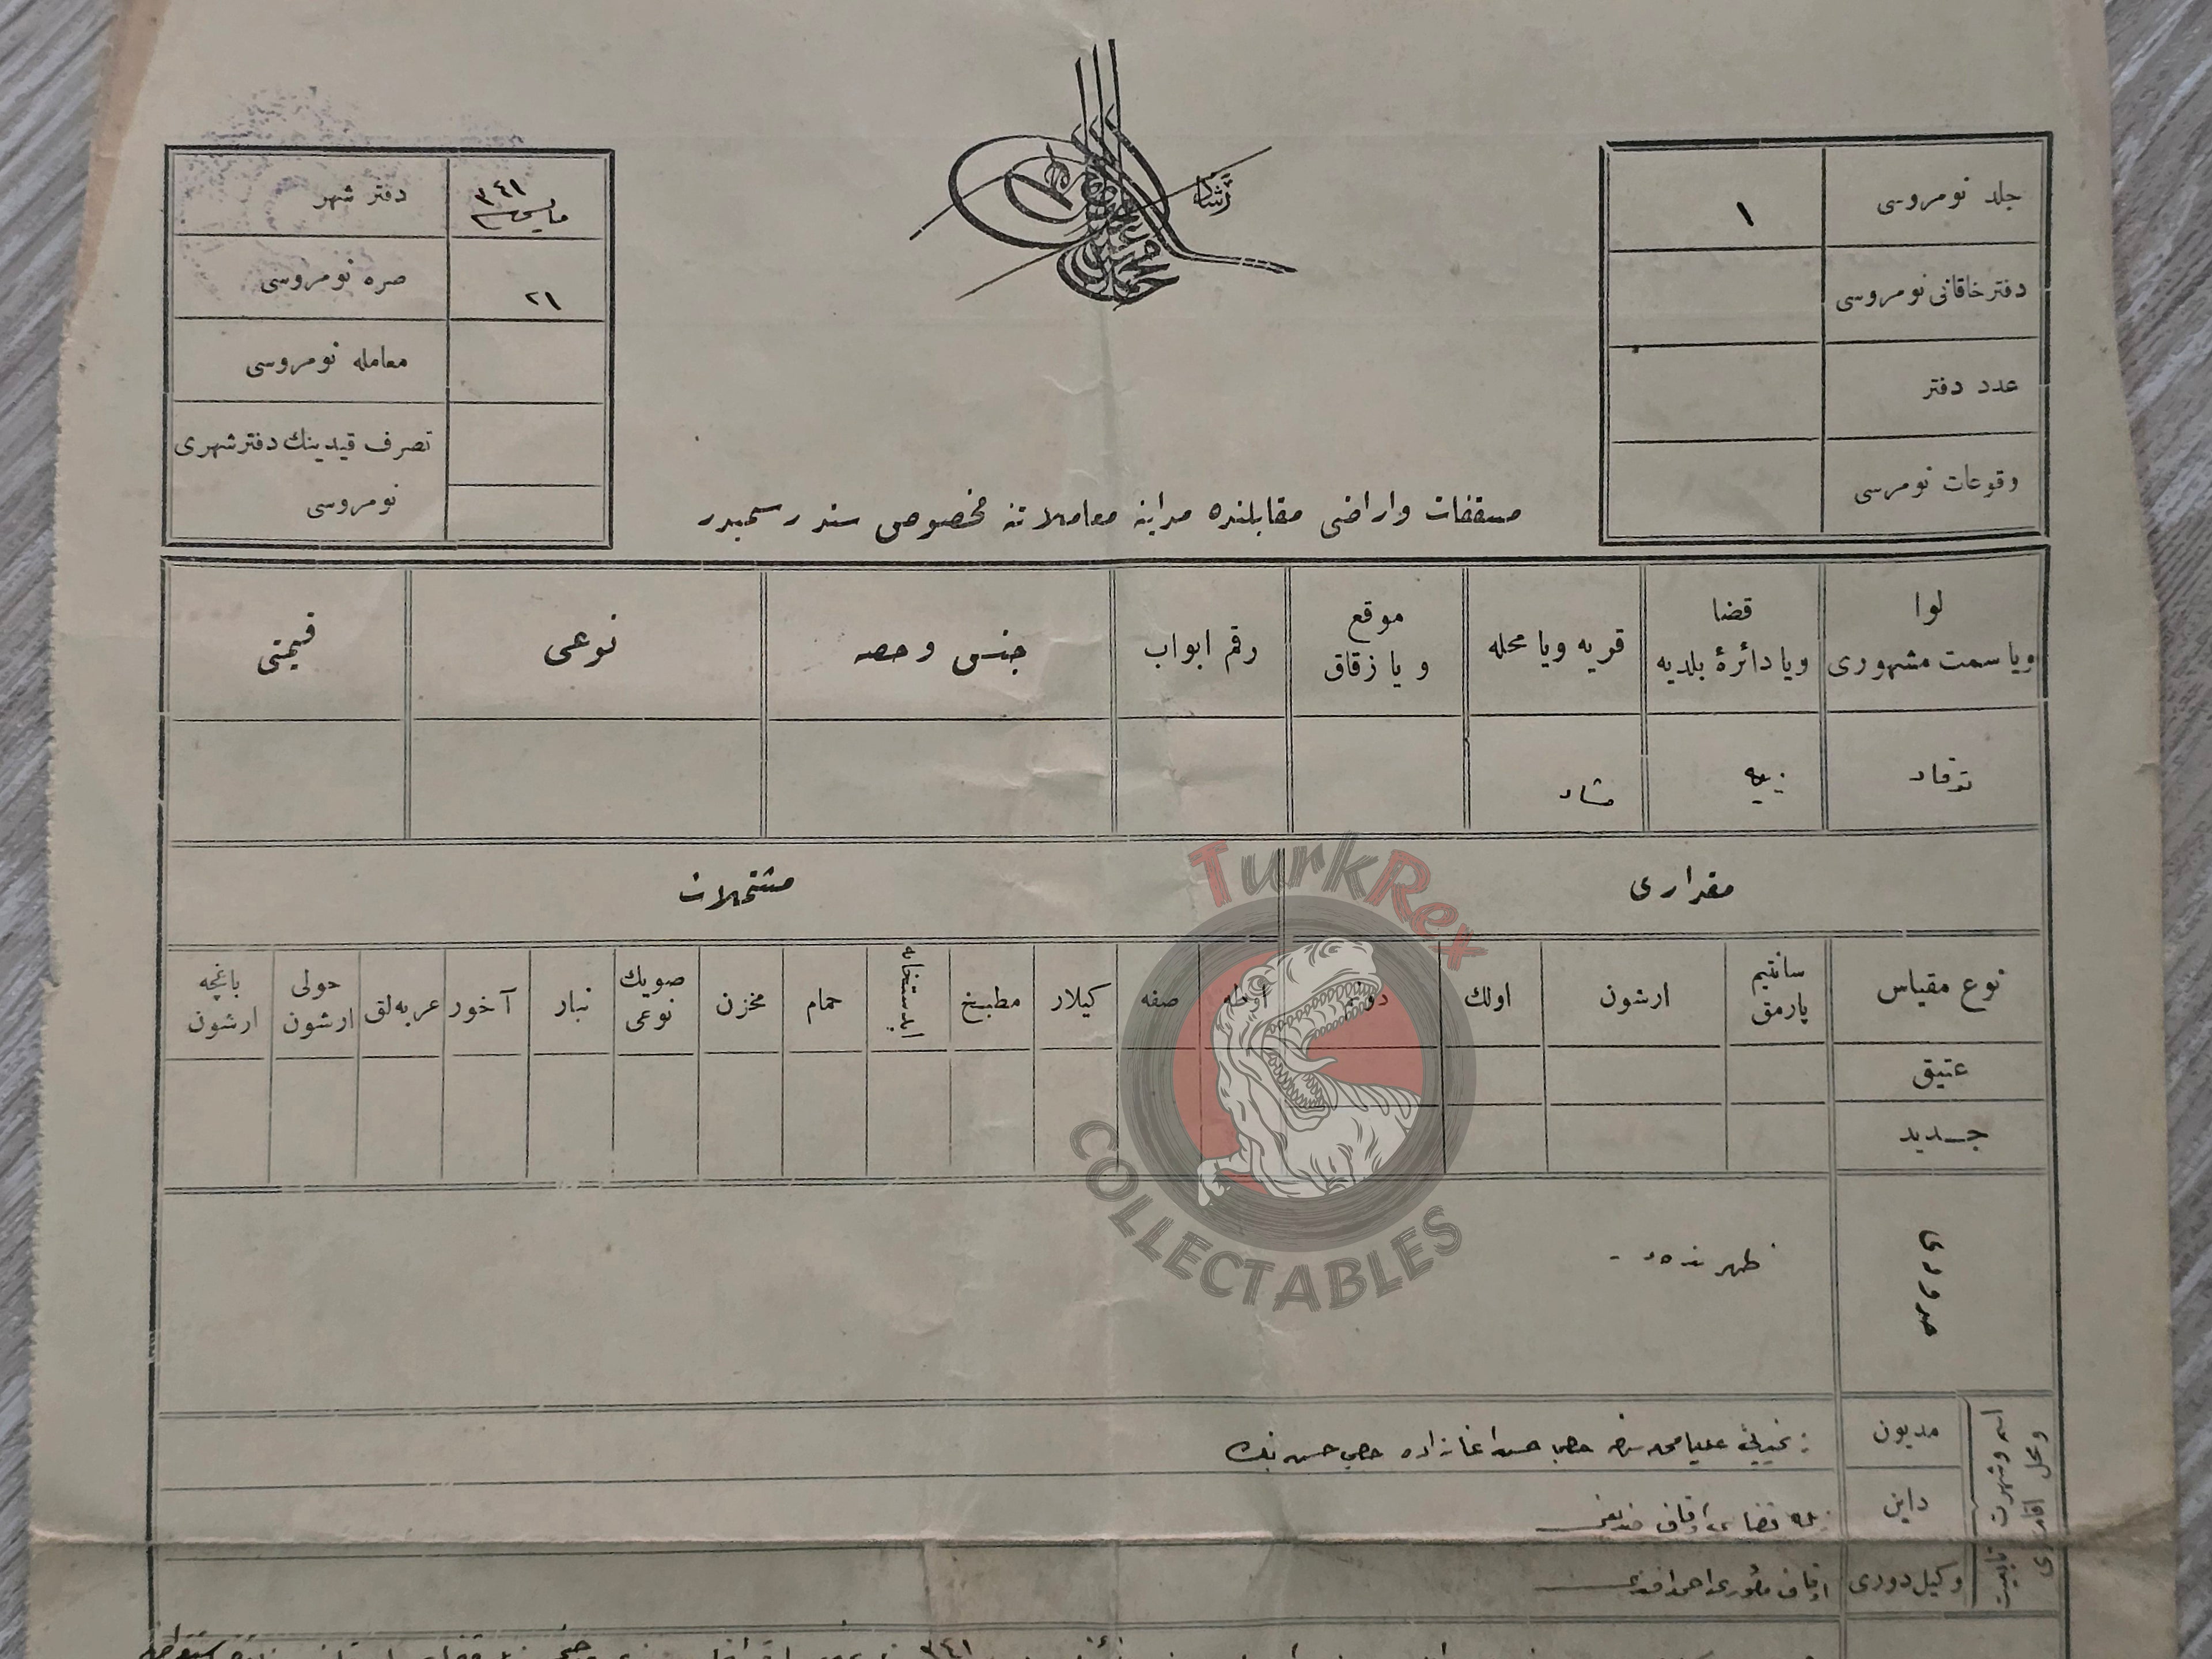 رشاد
جلد نومروسی ١
دفترخاقانی نومروسی
عدد دفتر
وقوعات نومرسی
دفتر شهر مایس ٣٤١
صره نومروسی ٢١
معامله نومروسی
تصرف قیدینك دفتر شهری
نومروسی
مسقفات واراضی مقابلنده مداینه معاملاتنه مخصوص سند رسمیدر
لوا ویا سمت مشهوری
قضا ویا دائرهٔ بلدیه
قریه ویا محله
موقع ویا زقاق
رقم ابواب
جنس وحصه
نوعی
قیمتی
توقاد
زیله
مقداری
مشتملات
نوع مقیاس
سانتیم پارمق
ارشون
اولك
دونم
اوطه
صفه
کیلار
مطبخ
ابدستخانه
حمام
مخزن
صویك نوعی
نبار
آخور
عربه‌لق
حولی ارشون
باغچه ارشون
عتیق
جدید
حدودی
ظهرنده در
اسم وشهرت تابعیت ومحل اقامتلری
مدیون
حاجی حسن اغا زاده حاجی حسن بك
داین
زیله قضاسی اوقاف صندیغی
وکیل دوری
اوقاف مأموری احمد افندی
٣٤١